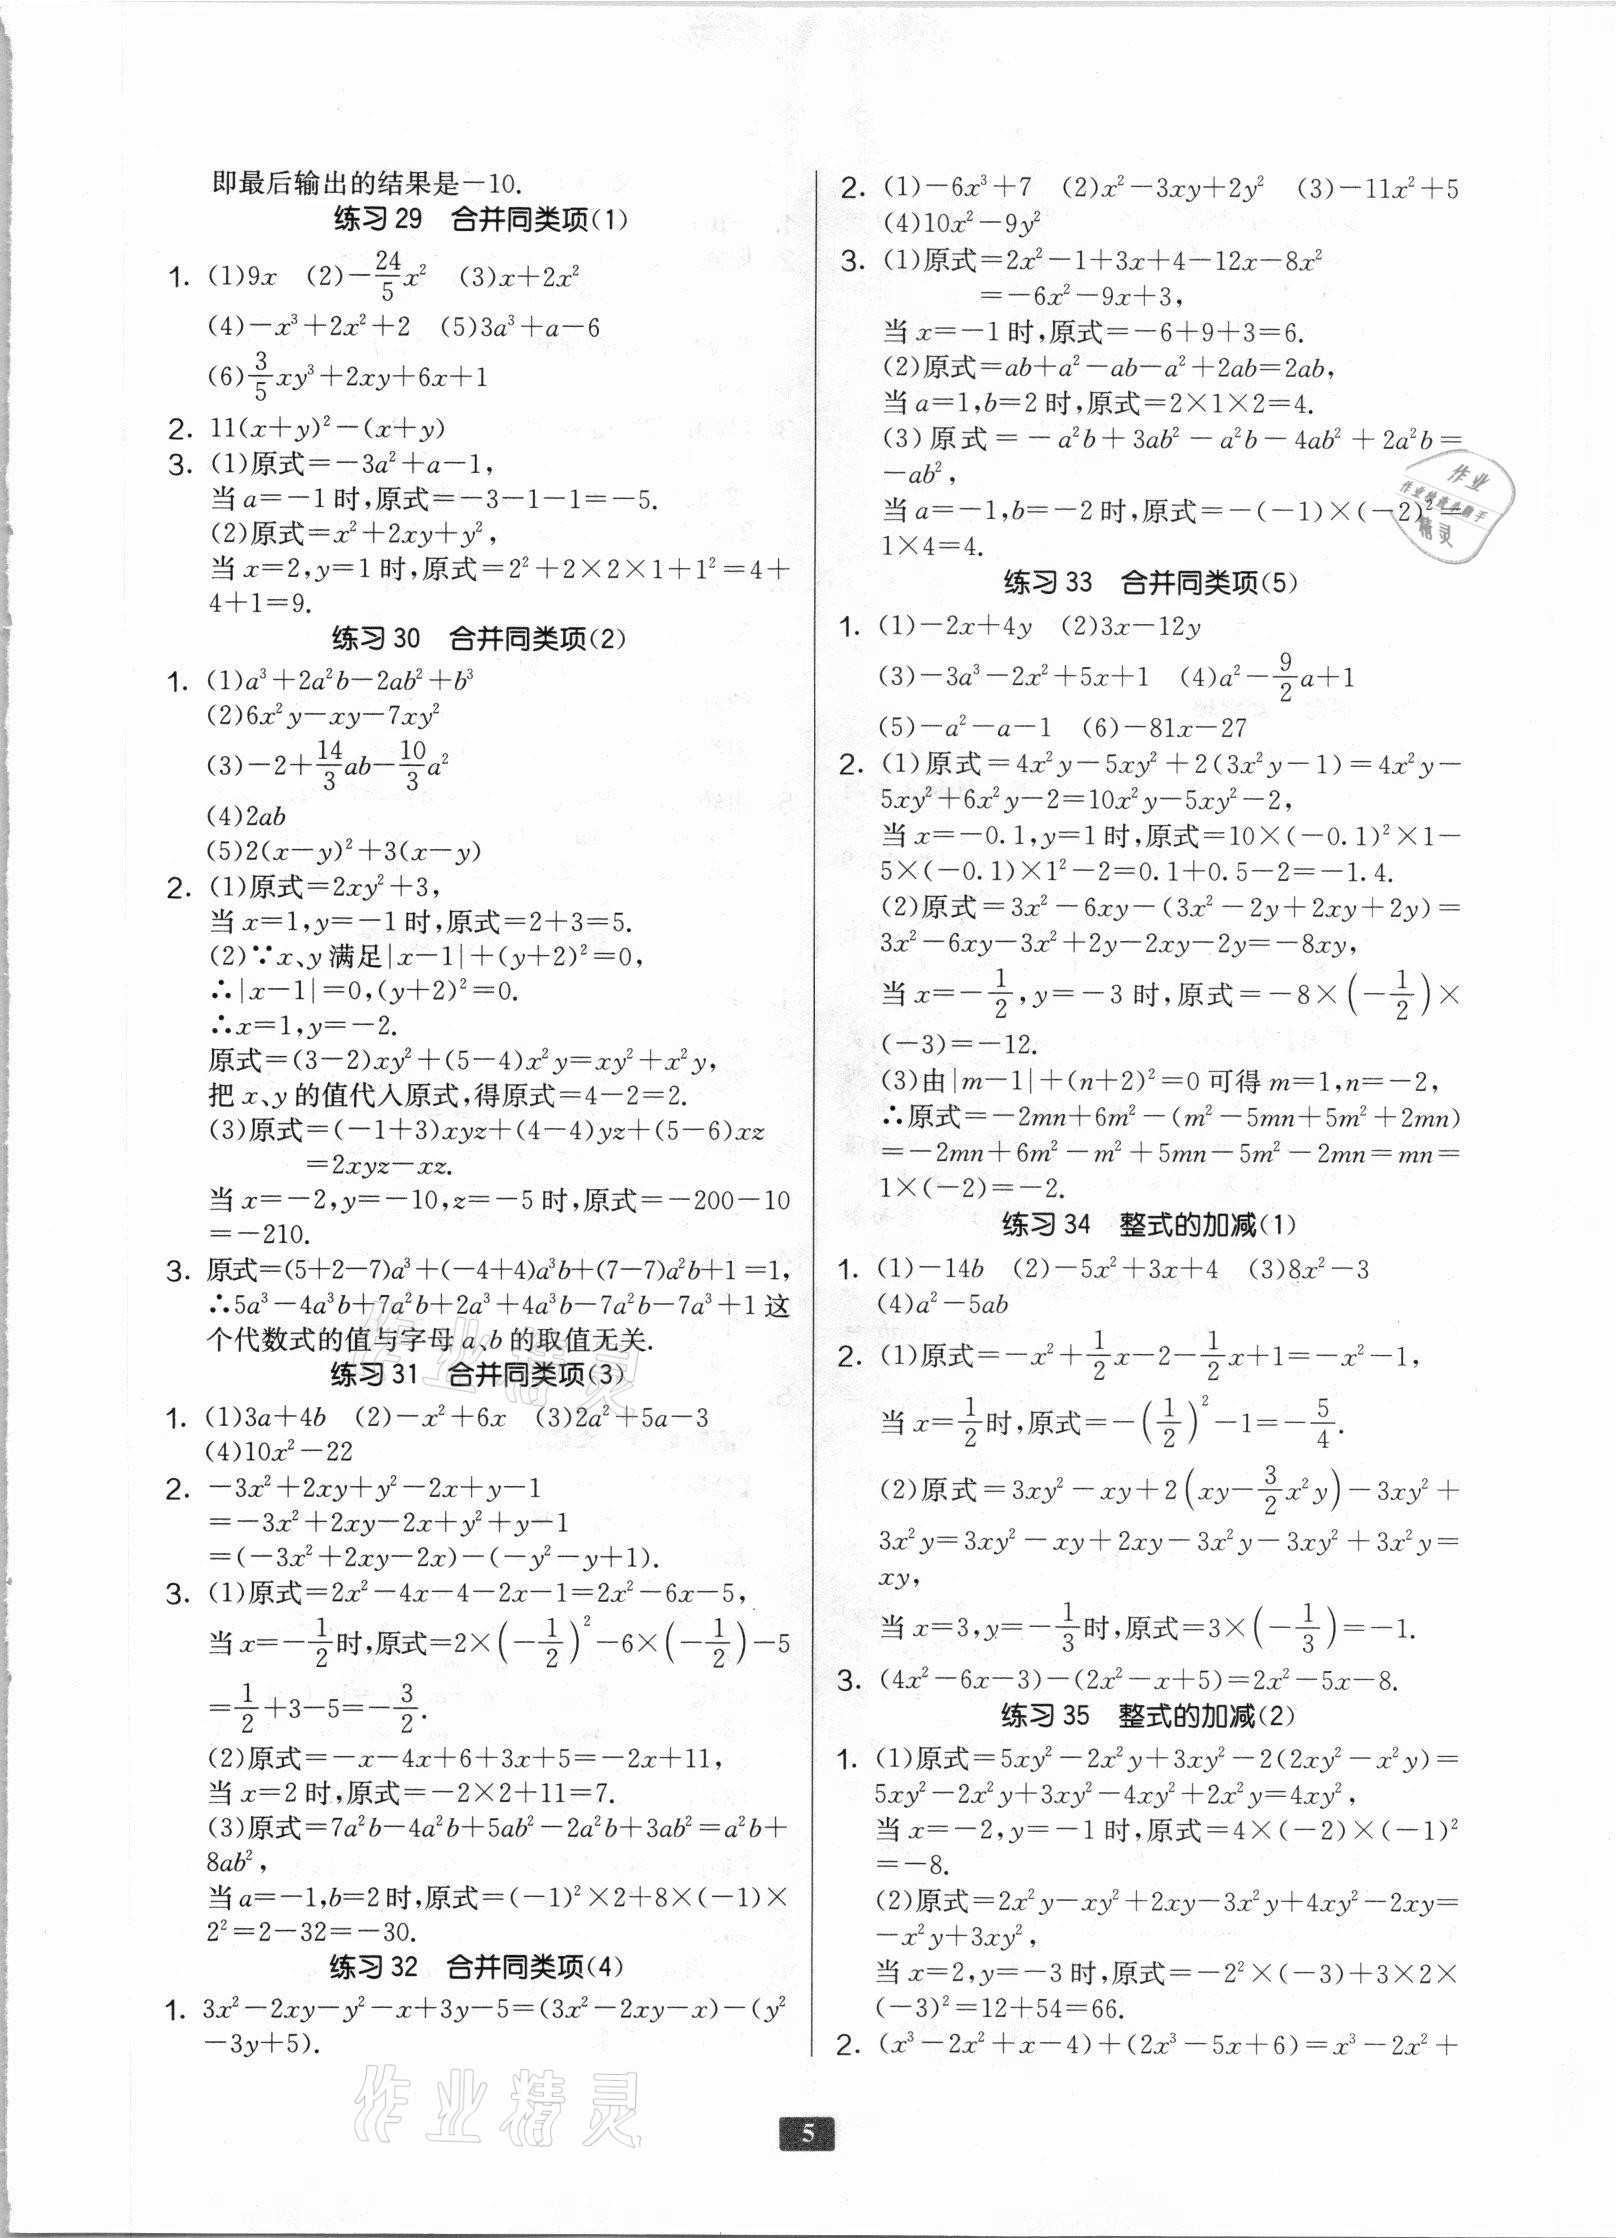 即最后输出的结果是－10.
练习 29　合并同类项(1)
1. (1)9x　(2)－24/5x²　(3)x＋2x²
(4)－x³＋2x²＋2　(5)3a³＋a－6
(6)3/5xy³＋2xy＋6x＋1
2. 11(x＋y)²－(x＋y)
3. (1)原式＝－3a²＋a－1，
当 a＝－1 时，原式＝－3－1－1＝－5.
(2)原式＝x²＋2xy＋y²，
当 x＝2，y＝1 时，原式＝2²＋2×2×1＋1²＝4＋
4＋1＝9.
练习 30　合并同类项(2)
1. (1)a³＋2a²b－2ab²＋b³
(2)6x²y－xy－7xy²
(3)－2＋14/3ab－10/3a²
(4)2ab
(5)2(x－y)²＋3(x－y)
2. (1)原式＝2xy²＋3，
当 x＝1，y＝－1 时，原式＝2＋3＝5.
(2)∵x、y 满足|x－1|＋(y＋2)²＝0，
∴|x－1|＝0，(y＋2)²＝0.
∴x＝1，y＝－2.
原式＝(3－2)xy²＋(5－4)x²y＝xy²＋x²y，
把 x、y 的值代入原式，得原式＝4－2＝2.
(3)原式＝(－1＋3)xyz＋(4－4)yz＋(5－6)xz
＝2xyz－xz.
当 x＝－2，y＝－10，z＝－5 时，原式＝－200－10
＝－210.
3. 原式＝(5＋2－7)a³＋(－4＋4)a³b＋(7－7)a²b＋1＝1，
∴5a³－4a³b＋7a²b＋2a³＋4a³b－7a²b－7a³＋1 这
个代数式的值与字母 a、b 的取值无关.
练习 31　合并同类项(3)
1. (1)3a＋4b　(2)－x²＋6x　(3)2a²＋5a－3
(4)10x²－22
2. －3x²＋2xy＋y²－2x＋y－1
＝－3x²＋2xy－2x＋y²＋y－1
＝(－3x²＋2xy－2x)－(－y²－y＋1).
3. (1)原式＝2x²－4x－4－2x－1＝2x²－6x－5，
当 x＝－1/2时，原式＝2×(－1/2)²－6×(－1/2)－5
＝1/2＋3－5＝－3/2.
(2)原式＝－x－4x＋6＋3x＋5＝－2x＋11，
当 x＝2 时，原式＝－2×2＋11＝7.
(3)原式＝7a²b－4a²b＋5ab²－2a²b＋3ab²＝a²b＋
8ab²，
当 a＝－1，b＝2 时，原式＝(－1)²×2＋8×(－1)×
2²＝2－32＝－30.
练习 32　合并同类项(4)
1. 3x²－2xy－y²－x＋3y－5＝(3x²－2xy－x)－(y²
－3y＋5).
2. (1)－6x³＋7　(2)x²－3xy＋2y²　(3)－11x²＋5
(4)10x²－9y²
3. (1)原式＝2x²－1＋3x＋4－12x－8x²
＝－6x²－9x＋3，
当 x＝－1 时，原式＝－6＋9＋3＝6.
(2)原式＝ab＋a²－ab－a²＋2ab＝2ab，
当 a＝1，b＝2 时，原式＝2×1×2＝4.
(3)原式＝－a²b＋3ab²－a²b－4ab²＋2a²b＝
－ab²，
当 a＝－1，b＝－2 时，原式＝－(－1)×(－2)²＝
1×4＝4.
练习 33　合并同类项(5)
1. (1)－2x＋4y　(2)3x－12y
(3)－3a³－2x²＋5x＋1　(4)a²－9/2a＋1
(5)－a²－a－1　(6)－81x－27
2. (1)原式＝4x²y－5xy²＋2(3x²y－1)＝4x²y－
5xy²＋6x²y－2＝10x²y－5xy²－2，
当 x＝－0.1，y＝1 时，原式＝10×(－0.1)²×1－
5×(－0.1)×1²－2＝0.1＋0.5－2＝－1.4.
(2)原式＝3x²－6xy－(3x²－2y＋2xy＋2y)＝
3x²－6xy－3x²＋2y－2xy－2y＝－8xy，
当 x＝－1/2，y＝－3 时，原式＝－8×(－1/2)×
(－3)＝－12.
(3)由|m－1|＋(n＋2)²＝0 可得 m＝1，n＝－2，
∴原式＝－2mn＋6m²－(m²－5mn＋5m²＋2mn)
＝－2mn＋6m²－m²＋5mn－5m²－2mn＝mn＝
1×(－2)＝－2.
练习 34　整式的加减(1)
1. (1)－14b　(2)－5x²＋3x＋4　(3)8x²－3
(4)a²－5ab
2. (1)原式＝－x²＋1/2x－2－1/2x＋1＝－x²－1，
当 x＝1/2时，原式＝－(1/2)²－1＝－5/4.
(2)原式＝3xy²－xy＋2(xy－3/2x²y)－3xy²＋
3x²y＝3xy²－xy＋2xy－3x²y－3xy²＋3x²y＝
xy，
当 x＝3，y＝－1/3时，原式＝3×(－1/3)＝－1.
3. (4x²－6x－3)－(2x²－x＋5)＝2x²－5x－8.
练习 35　整式的加减(2)
1. (1)原式＝5xy²－2x²y＋3xy²－2(2xy²－x²y)＝
5xy²－2x²y＋3xy²－4xy²＋2x²y＝4xy²，
当 x＝－2，y＝－1 时，原式＝4×(－2)×(－1)²
＝－8.
(2)原式＝2x²y－xy²＋2xy－3x²y＋4xy²－2xy＝
－x²y＋3xy²，
当 x＝2，y＝－3 时，原式＝－2²×(－3)＋3×2×
(－3)²＝12＋54＝66.
2. (x³－2x²＋x－4)＋(2x³－5x＋6)＝x³－2x²＋
5
作业
作业检查小助手
精灵
作业精灵
作业精灵